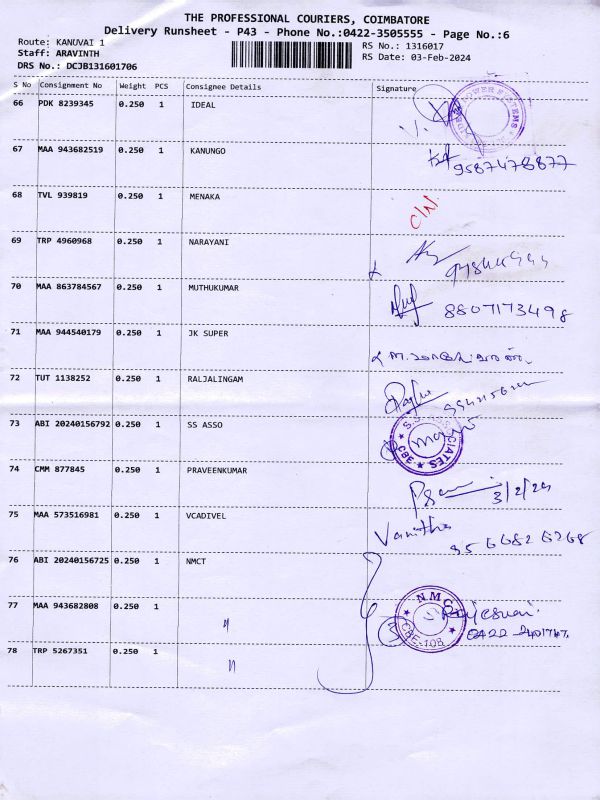 THE PROFESSIONAL COURIERS, COIMBATORE
Delivery Runsheet - P43 - Phone No.:0422-3505555 - Page No.:6
Route: KANUVAI 1
Staff: ARAVINTH
DRS No.: DCJB131601706
RS No.: 1316017
RS Date: 03-Feb-2024
S No Consignment No Weight PCS Consignee Details Signature
66 PDK 8239345 0.250 1 IDEAL
67 MAA 943682519 0.250 1 KANUNGO
9587478877
68 TVL 939819 0.250 1 MENAKA
C/N.
69 TRP 4960968 0.250 1 NARAYANI
70 MAA 863784567 0.250 1 MUTHUKUMAR
8807173498
71 MAA 944540179 0.250 1 JK SUPER
72 TUT 1138252 0.250 1 RALJALINGAM
73 ABI 20240156792 0.250 1 SS ASSO
CBE
74 CMM 877845 0.250 1 PRAVEENKUMAR
3/2/24
75 MAA 573516981 0.250 1 VCADIVEL
Vanitha
76 ABI 20240156725 0.250 1 NMCT
77 MAA 943682808 0.250 1 "
N.M.C
CBE-108
0422
78 TRP 5267351 0.250 1 "